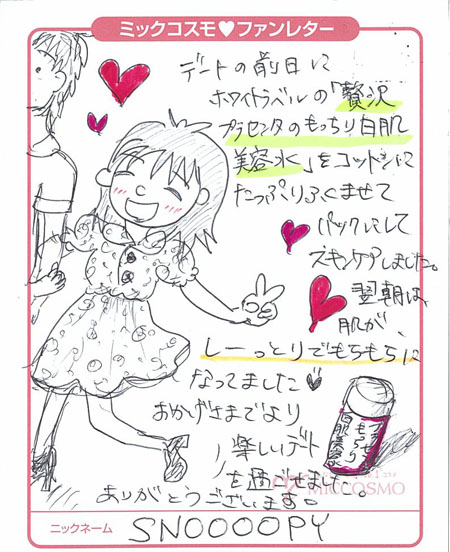 ミックコスモ♥ファンレター
デートの前日に
ホワイトラベルの「贅沢
プラセンタのもっちり白肌
美容水」をコットンに
たっぷりふくませて
パックにして
スキンケアしました。
翌朝は、
肌が、
しーっとりでもちもちに
なってました
おかげさまでより
楽しいデート
を過ごせました。
ありがとうございます。
プラセンタの
もっちり
白肌美容水
MICCOSMO
ニックネーム
SNOOOOPY